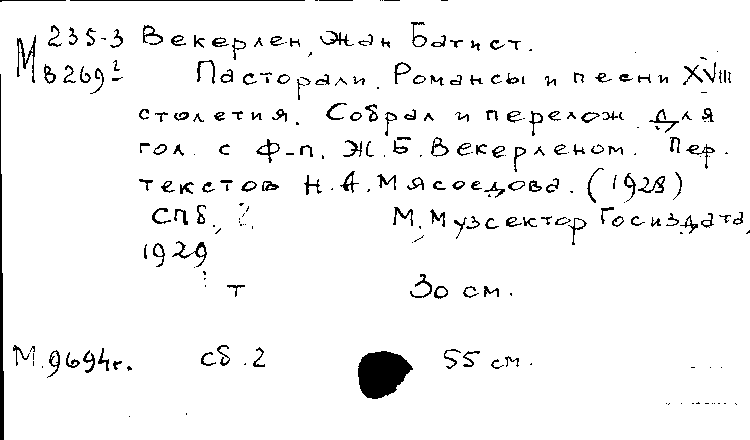 М 235-3 Векерлен, Жан Батист.
В269² Пасторали. Романсы и песни XVIII
столетия. Собрал и перелож. для
гол. с ф-п. Ж.Б.Векерленом. Пер.
текстов Н.А.Мясоедова. (1928)
Сб., М., Музсектор Госиздата,
1929
т 30 см.
М.9694г. сб.2 55 см.